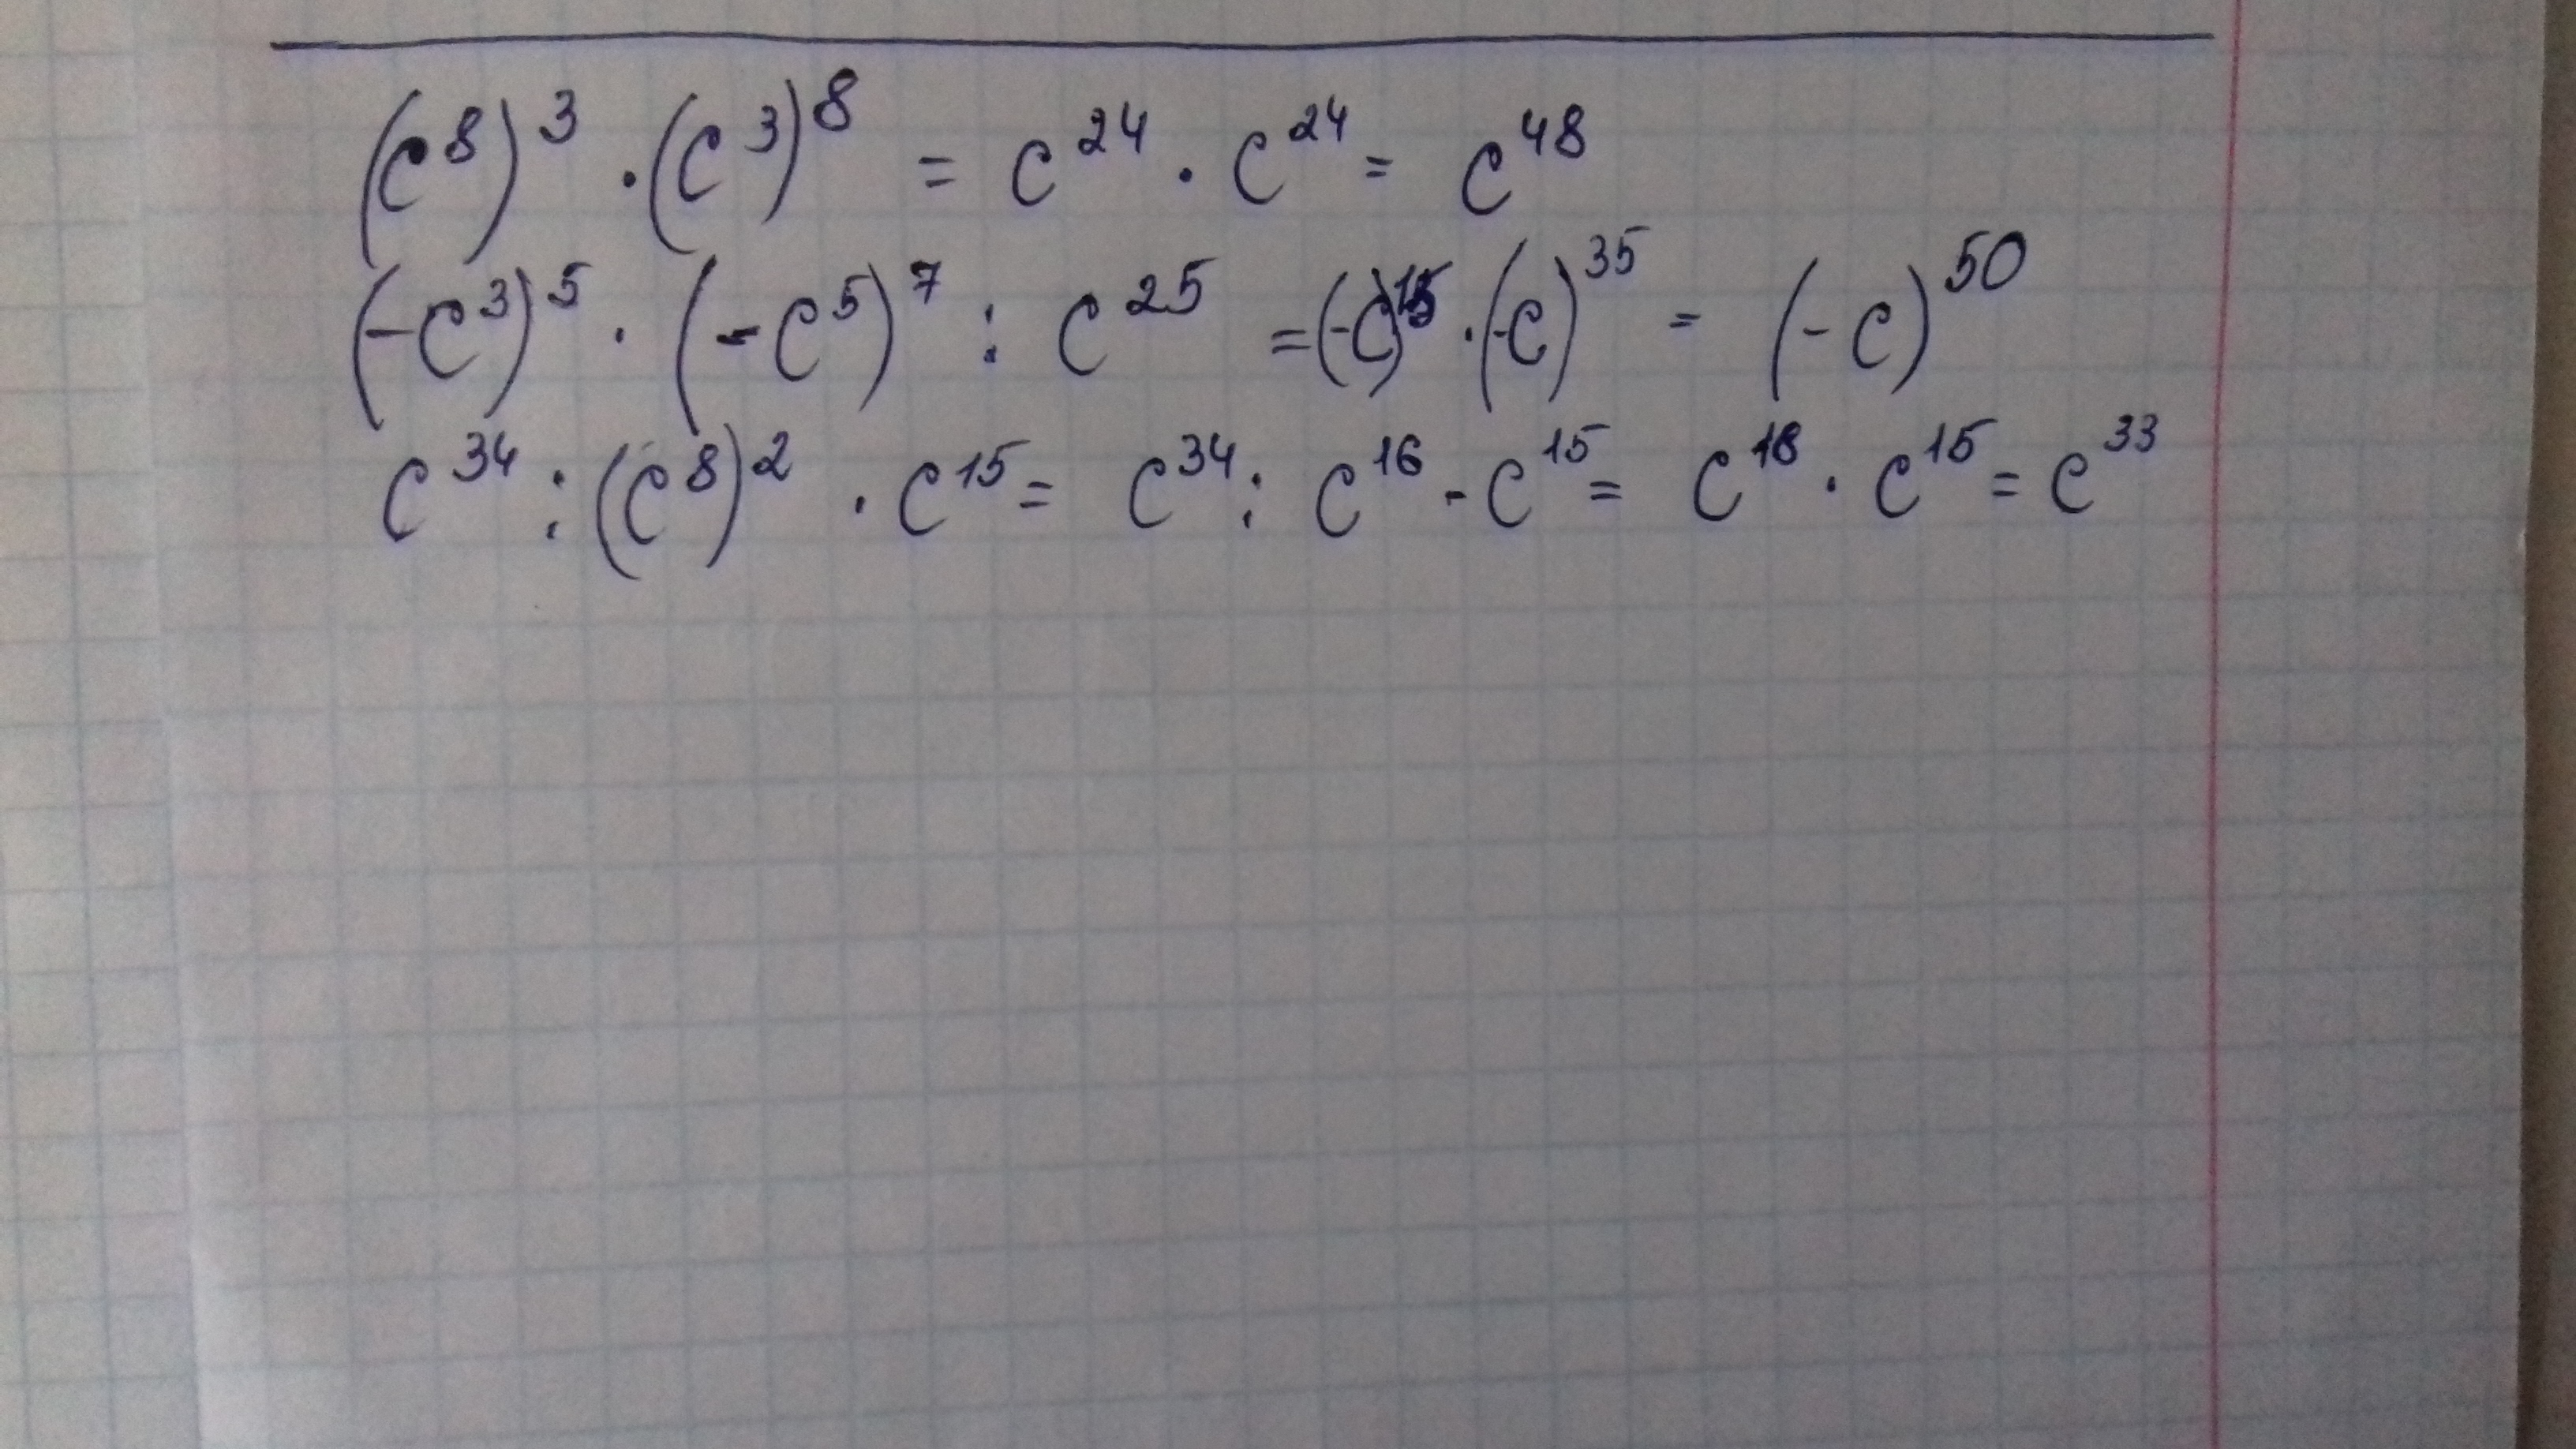 (c⁸)³ · (c³)⁸ = c²⁴ · c²⁴ = c⁴⁸
(-c³)⁵ · (-c⁵)⁷ : c²⁵ = (-c)¹⁵ · (-c)³⁵ = (-c)⁵⁰
c³⁴ : (c⁸)² · c¹⁵ = c³⁴ : c¹⁶ · c¹⁵ = c¹⁸ · c¹⁵ = c³³